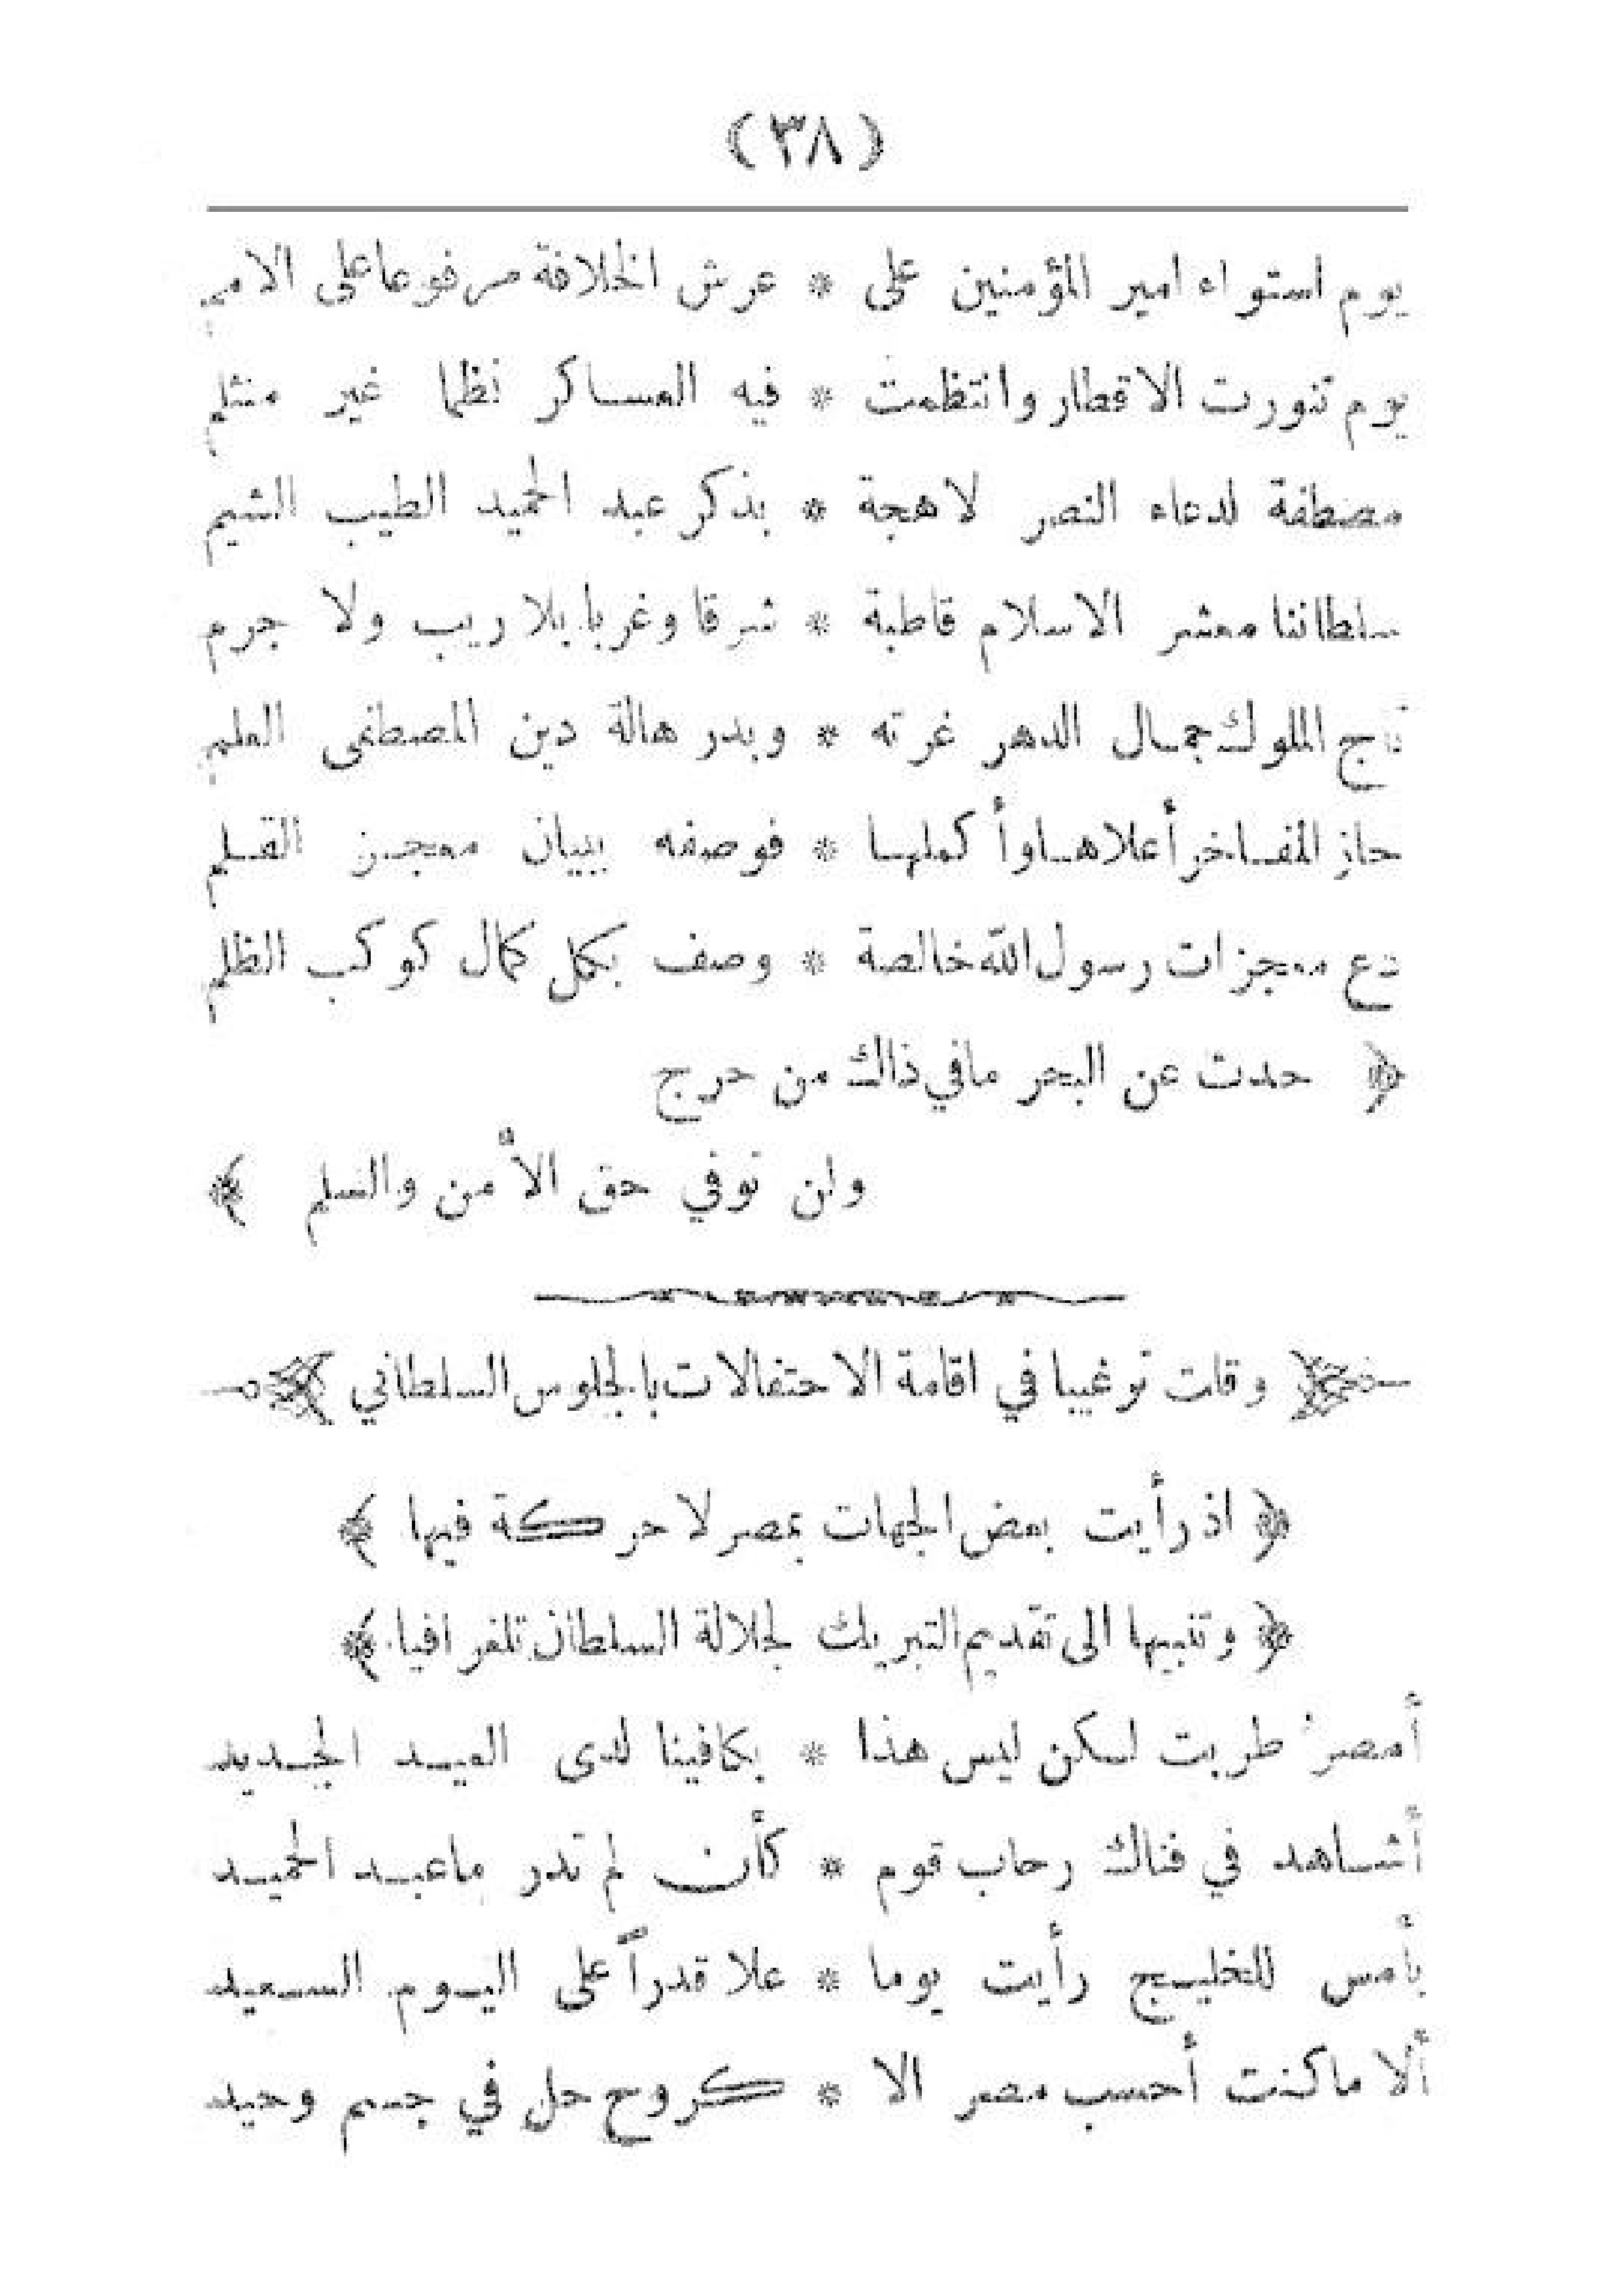 (٣٨)
يوم استواء امير المؤمنين على * عرش الخلافة مرفوعا على الامم
يوم تنورت الاقطار وانتظمت * فيه العساكر نظما غير منثلم
مصطفة لدعاء النصر لاهجة * بذكر عبد الحميد الطيب الشيم
سلطاننا معشر الاسلام قاطبة * شرقا وغربا بلا ريب ولا جرم
تاج الملوك جمال الدهر غرته * وبدر هالة دين المصطفى العلم
حاز المفاخر أعلاها وأكملها * فوصفه ببيان معجز القلم
دع معجزات رسول الله خالصة * وصف بكل كمال كوكب الظلم
﴿ حدث عن البحر مافي ذاك من حرج
ولن توفي حق الأمن والسلم ﴾
وقلت ترغيبا في اقامة الاحتفالات بالجلوس السلطاني
﴿ اذ رأيت بعض الجهات بمصر لا حركة فيها ﴾
﴿ وتنبيها الى تقديم التبريك لجلالة السلطان تلغرافيا ﴾
أمصرُ طربت لكن ليس هذا * بكافينا لدى العيد الجديد
أشاهد في فناك رحاب قوم * كأن لم تدر ماعبد الحميد
بأمس للخليج رأيت يوما * علا قدراً على اليوم السعيد
ألا ماكنت أحسب مصر الا * كروح حل في جسم وحيد